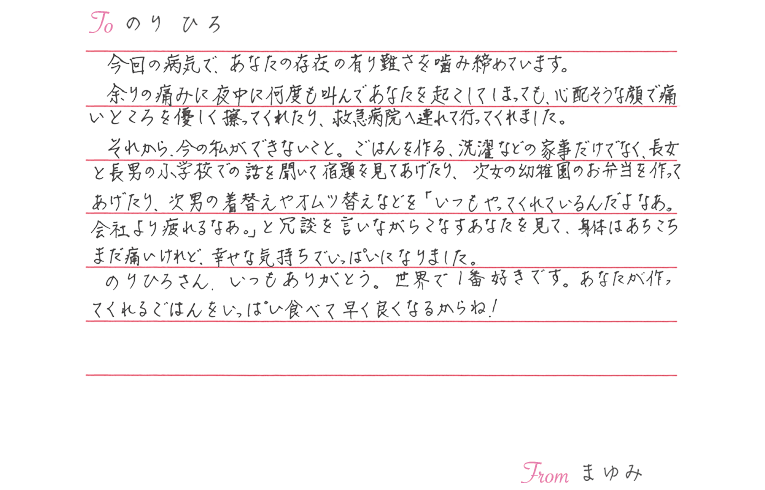 To のり ひろ
今回の病気で、あなたの存在の有り難さを噛み締めています。
余りの痛みに夜中に何度も叫んであなたを起こしてしまっても、心配そうな顔で痛
いところを優しく擦ってくれたり、救急病院へ連れて行ってくれました。
それから、今の私ができないこと。ごはんを作る、洗濯などの家事だけでなく、長女
と長男の小学校での話を聞いて宿題を見てあげたり、次女の幼稚園のお弁当を作って
あげたり、次男の着替えやオムツ替えなどを「いつもやってくれているんだよなあ。
会社より疲れるなあ。」と冗談を言いながらこなすあなたを見て、身体はあちこち
まだ痛いけれど、幸せな気持ちでいっぱいになりました。
のりひろさん、いつもありがとう。世界で1番好きです。あなたが作っ
てくれるごはんをいっぱい食べて早く良くなるからね!
From まゆみ